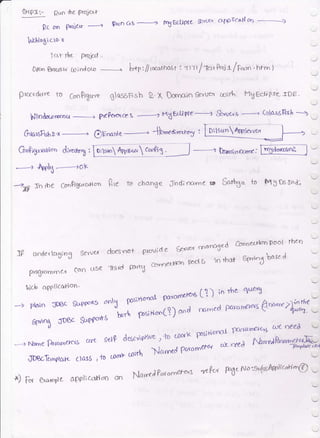 Step2:- Run the project
Rc on project → Run as → MyEclipse server application →
Weblogic10.x
Test the project.
Open Browser window → http://localhost:7171/TestProj1/Form.html
procedure to Configure glassFish 2.X Domain Server with MyEclipse IDE.
Window menu → preferences → MyEclipse → Servers → GlassFish →
GlassFish 2.x → Enable → Home directory : D:\Sun\AppServer →
Configuration directory : D:\Sun\AppServer\Config. → Domain name: mydomain2
→ Apply → ok
→ In the Configuration file to change Jndi name to Sathya to MyDsJndi.
If underlaying Server doesnot provide Server managed Connection pool then
programmer can use Third party connection pools in that Spring based
Web application.
→ plain JDBC Supports only positional parameters (?) in the query
Spring JDBC Supports both position(?) and named parameters (:name>) in the query.
→ Name Parameters are self descriptive, to work positional parameters we need
JDBCTemplate class, to work with Named Parameter we need NamedParameterJdbcTemplate
*) For example application on NamedParameters refer page No: